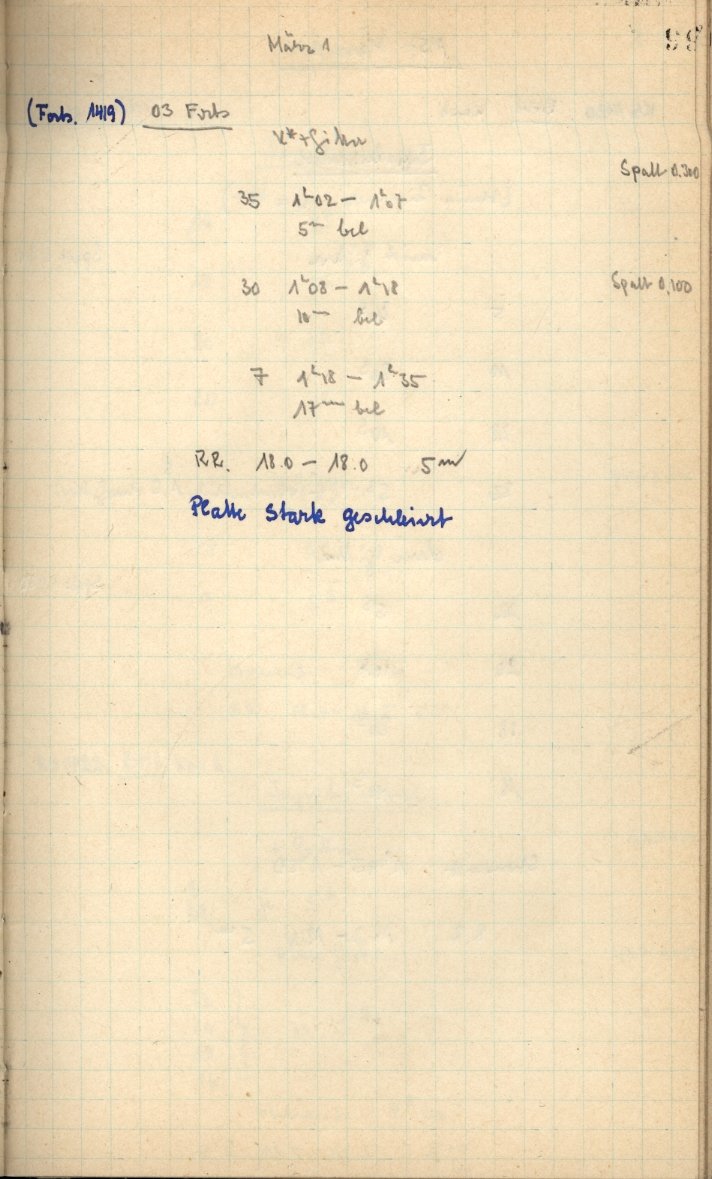 März 1
99
(Forts. 1419) 03 Forts
K*+Gitter
Spalt 0.300
35 1ʰ02 – 1ʰ07
5ᵐ bel
30 1ʰ08 – 1ʰ18 Spalt 0.100
10ᵐ bel
7 1ʰ18 – 1ʰ35
17ᵐ bel
RR. 18.0 – 18.0 5ᵐ
Platte stark geschleiert